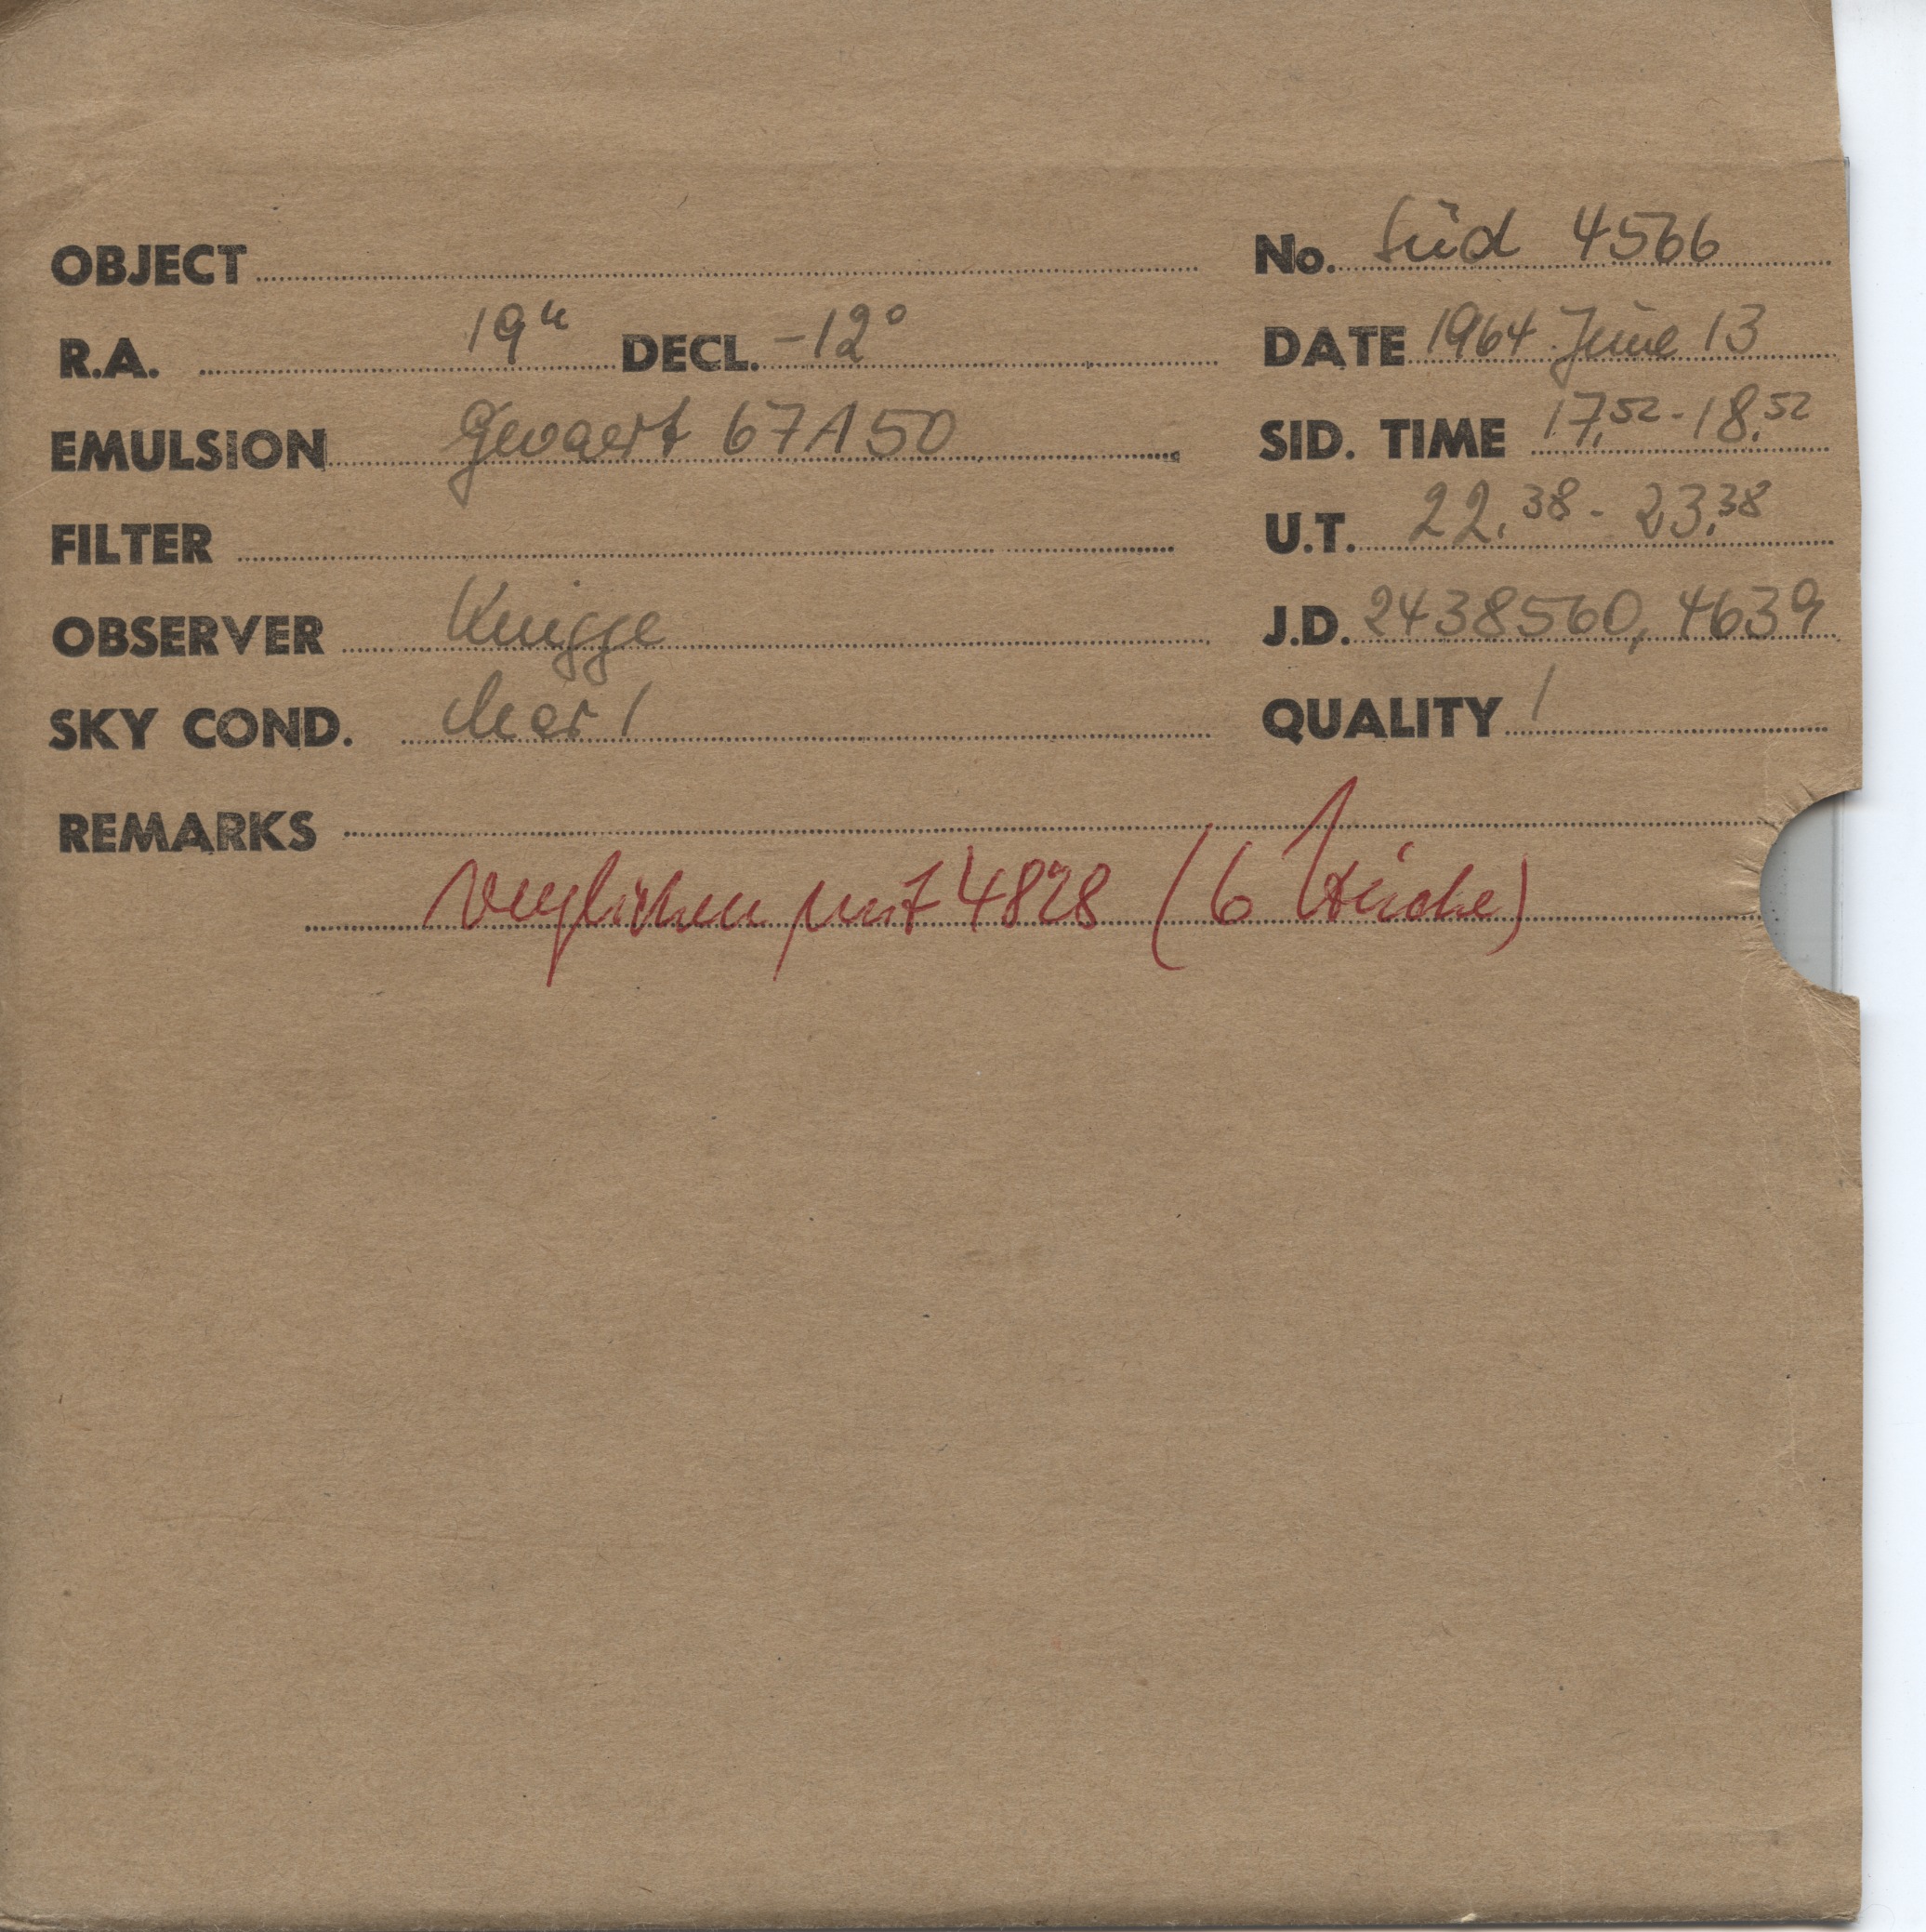 OBJECT No. Süd 4566
R.A. 19ʰ DECL. -12° DATE 1964 June 13
EMULSION Gevaert 67A50 SID. TIME 17.52 - 18.52
FILTER U.T. 22.38 - 23.38
OBSERVER Knigge J.D. 2438560,4639
SKY COND. clear 1 QUALITY 1
REMARKS
verglichen mit 4828 (6